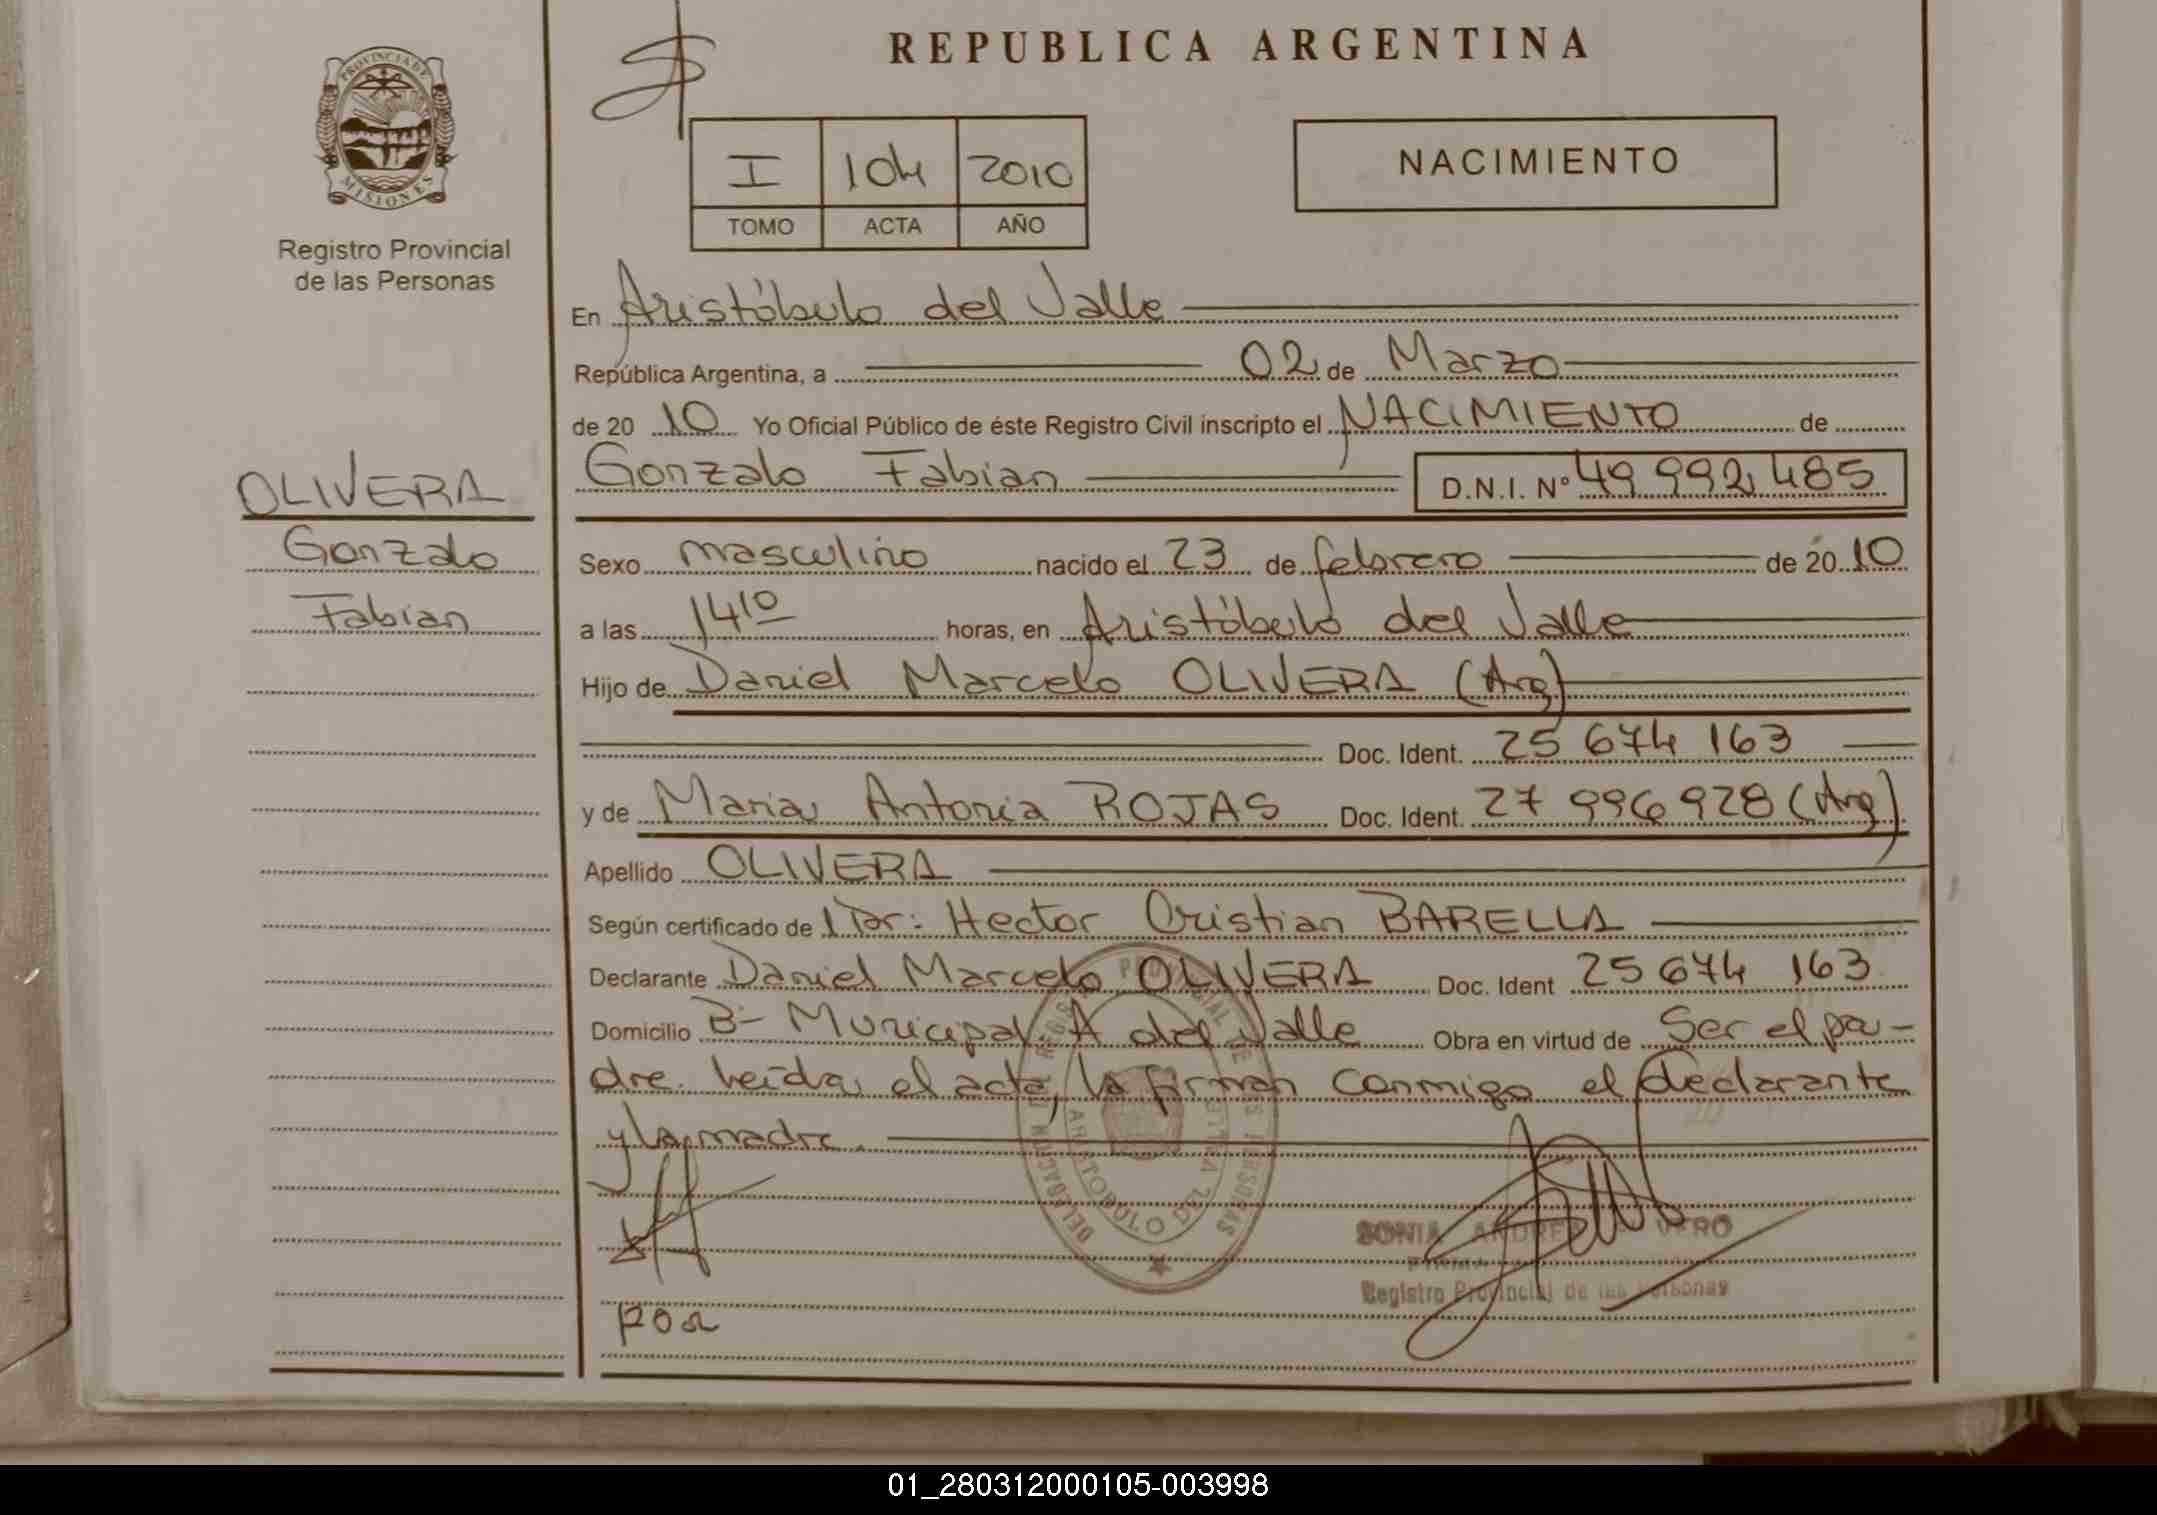 REPUBLICA ARGENTINA
PROVINCIA DE
MISIONES
Registro Provincial
de las Personas
I 104 2010
TOMO ACTA AÑO
NACIMIENTO
En Aristóbulo del Valle
República Argentina, a 02 de Marzo
de 20 10 Yo Oficial Público de éste Registro Civil inscripto el NACIMIENTO de
Gonzalo Fabian D.N.I. Nº 49 992 485
OLIVERA
Gonzalo
Fabian
Sexo masculino nacido el 23 de febrero de 20 10
a las 14 10 horas, en Aristóbulo del Valle
Hijo de Daniel Marcelo OLIVERA (Arg)
Doc. Ident. 25 674 163
y de Maria Antonia ROJAS Doc. Ident. 27 996 928 (Arg)
Apellido OLIVERA
Según certificado de Dr: Hector Cristian BARELLA
Declarante Daniel Marcelo OLIVERA Doc. Ident 25 674 163
Domicilio Bº Municipal A del Valle Obra en virtud de Ser el pa-
dre. Leida el acta, la firman conmigo el declarante
y la madre.
SONIA
Registro Provincial de las Personas
01_280312000105-003998